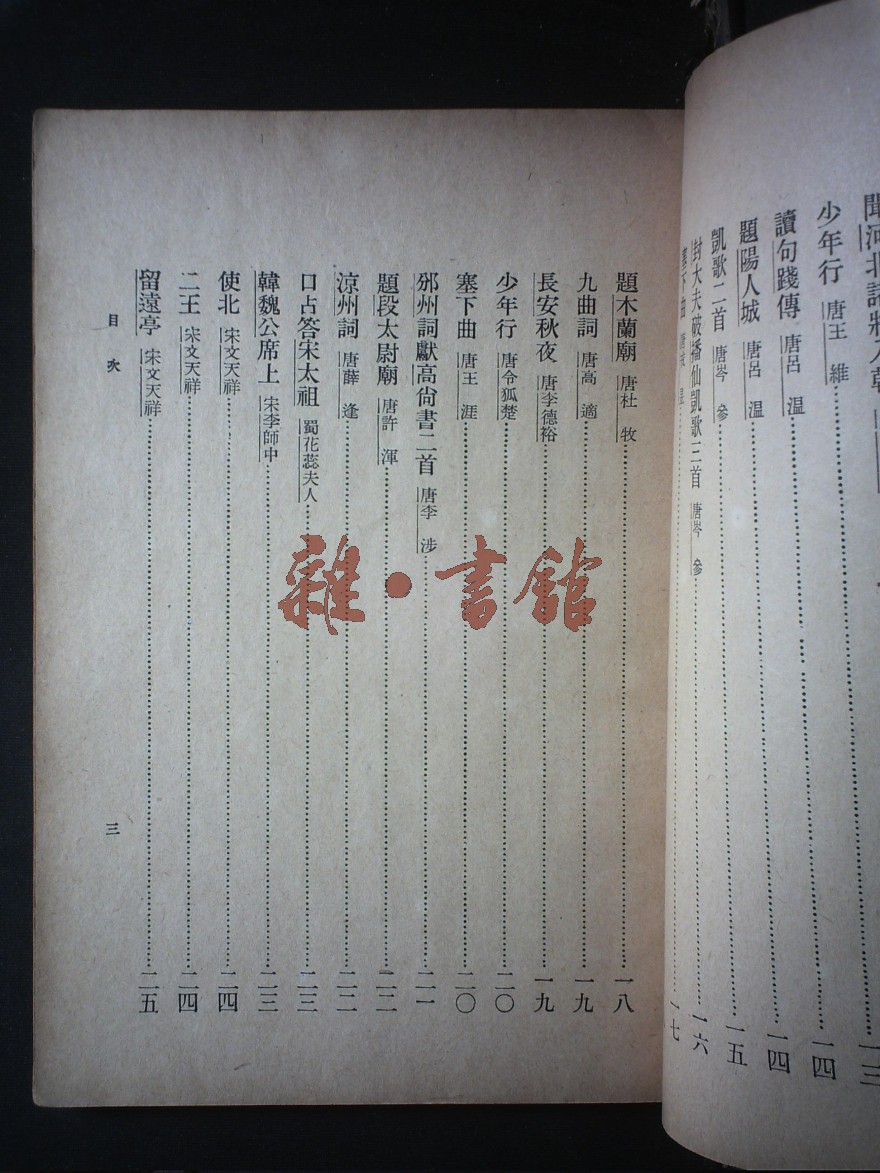 聞河北諸將入朝
少年行 唐王 維 一四
讀句踐傳 唐呂 温 一四
題陽人城 唐呂 温 一五
凱歌二首 唐岑 參
封大夫破播仙凱歌二首 唐岑 參 一六
塞下曲 一七
題木蘭廟 唐杜 牧 一八
九曲詞 唐高 適 一九
長安秋夜 唐李德裕 一九
少年行 唐令狐楚 二〇
塞下曲 唐王 涯 二〇
邠州詞獻高尙書二首 唐李 涉 二一
題段太尉廟 唐許 渾 二二
涼州詞 唐薛 逢 二二
口占答宋太祖 蜀花蕊夫人 二三
韓魏公席上 宋李師中 二三
使北 宋文天祥 二四
二王 宋文天祥 二四
留遠亭 宋文天祥 二五
目次
三
雜·書館